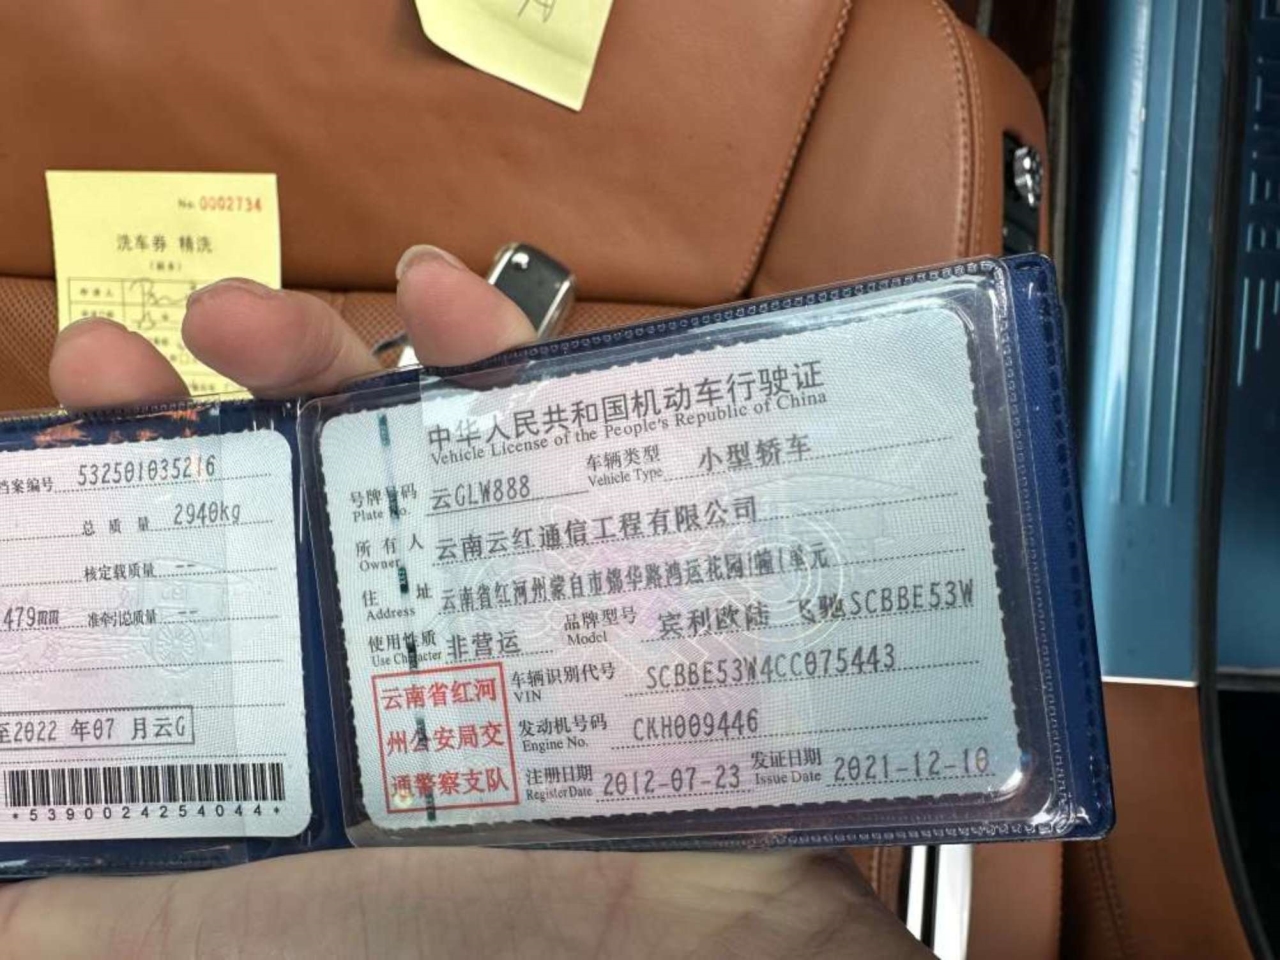 No. 0002734
洗车券 精洗
BENTLE
档案编号 532501035216
总质量 2940kg
核定载质量 --
479mm 准牵引总质量 --
至2022 年07 月云G
*5390024254044*
中华人民共和国机动车行驶证
Vehicle License of the People's Republic of China
号牌号码 云GLW888 车辆类型 小型轿车
Plate No. Vehicle Type
所有人 云南云红通信工程有限公司
Owner
住址 云南省红河州蒙自市锦华路鸿运花园1幢1单元
Address
使用性质 非营运 品牌型号 宾利欧陆 飞驰SCBBE53W
Use Character Model
云南省红河
州公安局交
通警察支队
车辆识别代号 SCBBE53W4CC075443
VIN
发动机号码 CKH009446
Engine No.
注册日期 2012-07-23 发证日期 2021-12-10
Register Date Issue Date